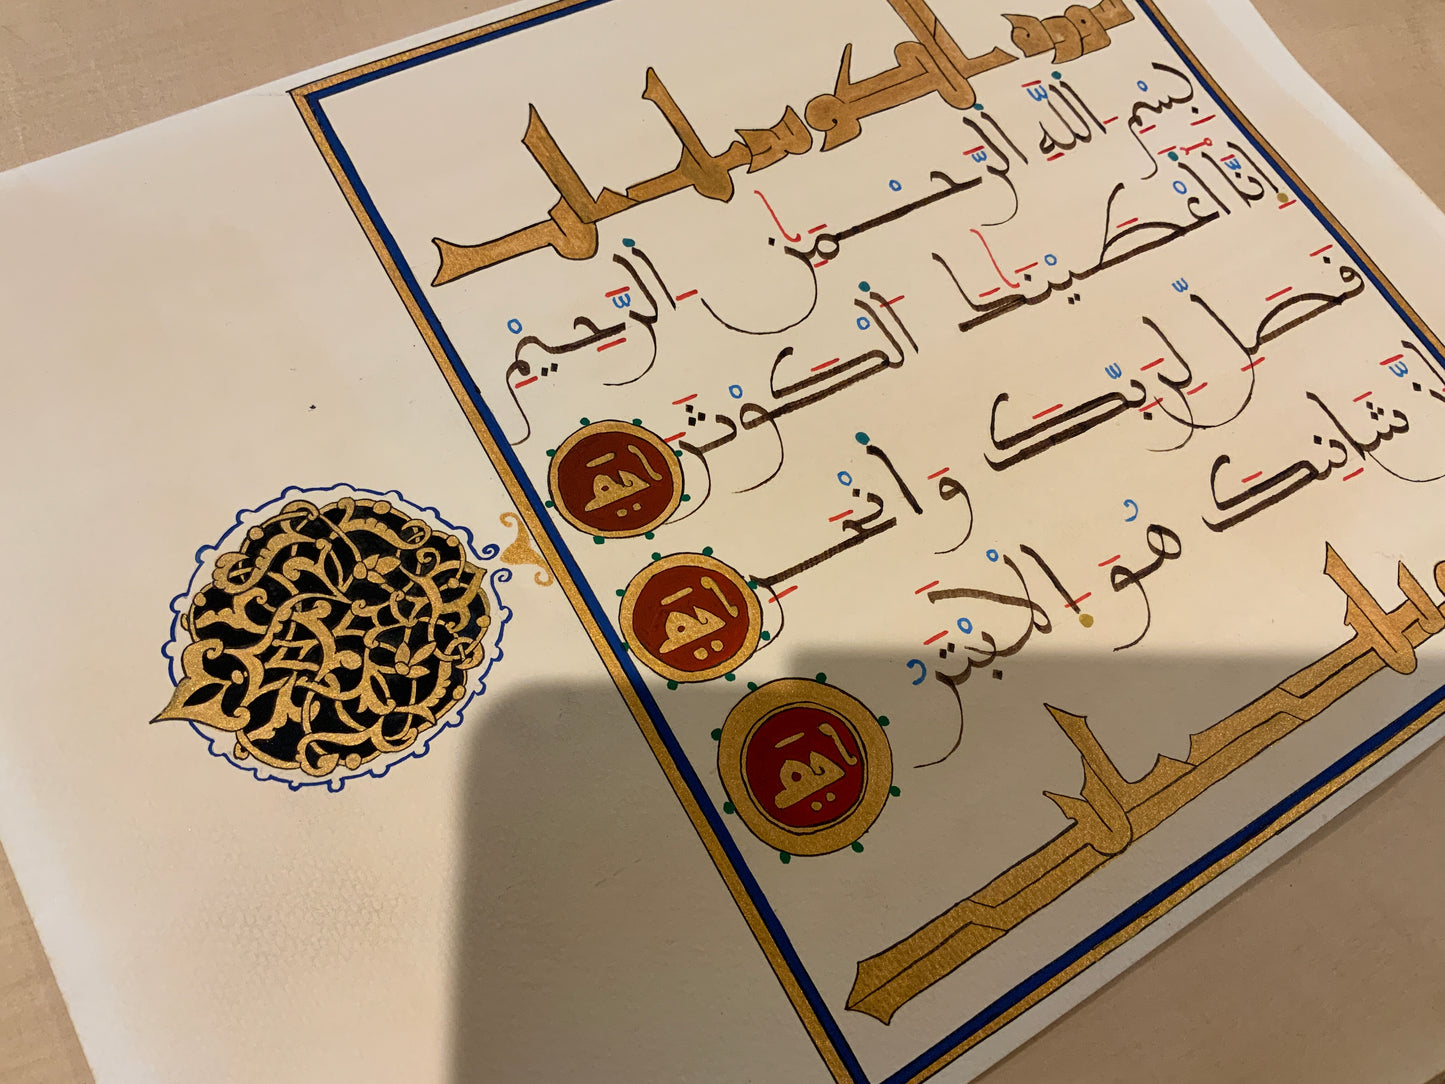 سورة الكوثر
بِسْمِ اللَّهِ الرَّحْمَٰنِ الرَّحِيمِ
إِنَّا أَعْطَيْنَٰكَ الْكَوْثَرَ اية
فَصَلِّ لِرَبِّكَ وَانْحَرْ اية
إِنَّ شَانِئَكَ هُوَ الْأَبْتَرُ اية